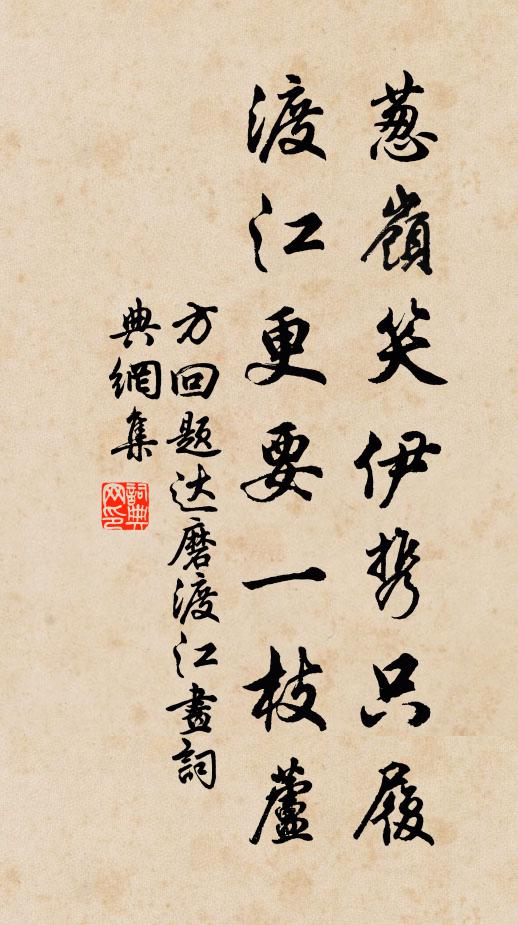 葱嶺笑伊携只履
渡江更要一枝蘆
方回题达磨渡江畫詞
典網集
詞典
网印